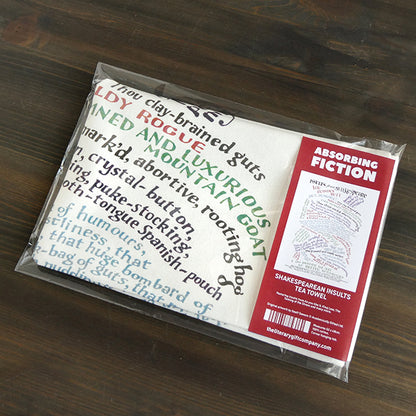 Thou clay-brained guts
LDY ROGUE
MNED AND LUXURIOUS
MOUNTAIN GOAT
mark'd, abortive, rooting hog
crystal-button,
ing, puke-stocking,
oth-tongue Spanish-pouch
of humours,
stliness, that
that huge bombard of
-bag of guts, that
ABSORBING
FICTION
SHAKESPEAREAN INSULTS
TEA TOWEL
theliterarygiftcompany.com